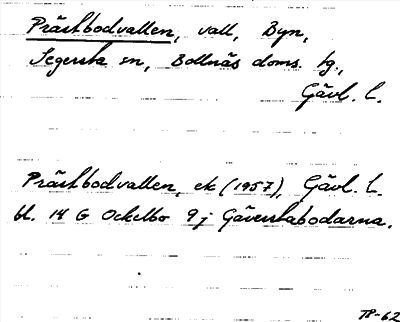 Prästbodvallen, vall, Byn,
Segersta sn, Bollnäs doms. tg.,
Gävl. l.
Prästbodvallen, ek (1957), Gävl. l.
bl. 14 G Ockelbo 9 j Gäverstabodarna.
TP-62